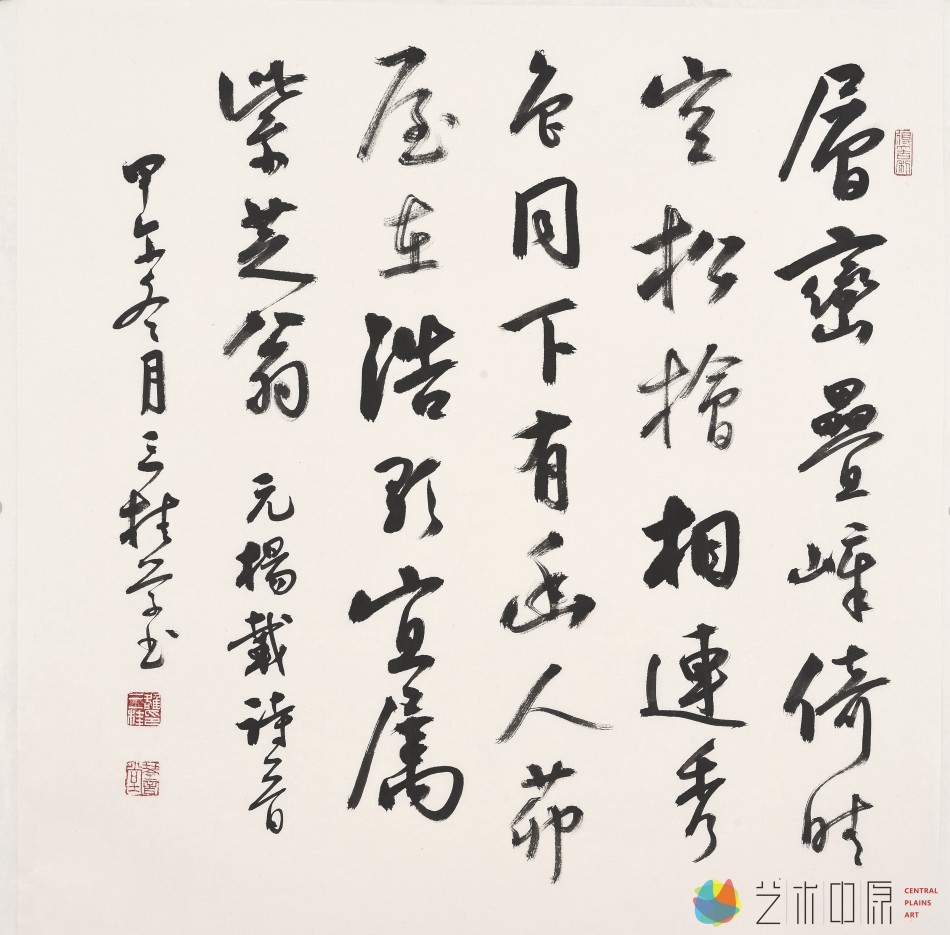 層巒疊嶂倚晴
空松檜相連秀
色同下有幽人茆
屋在浩歌宜屬
紫芝翁 元楊載詩一首
甲午冬月三桂學书
艺术中原
CENTRAL
PLAINS
ART